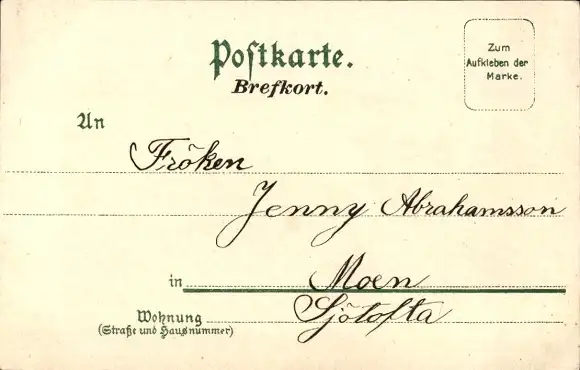 Postkarte.
Brefkort.
Zum
Aufkleben der
Marke.
An
Fröken
Jenny Abrahamsson
in Moen
Sjötofta
Wohnung
(Straße und Hausnummer)